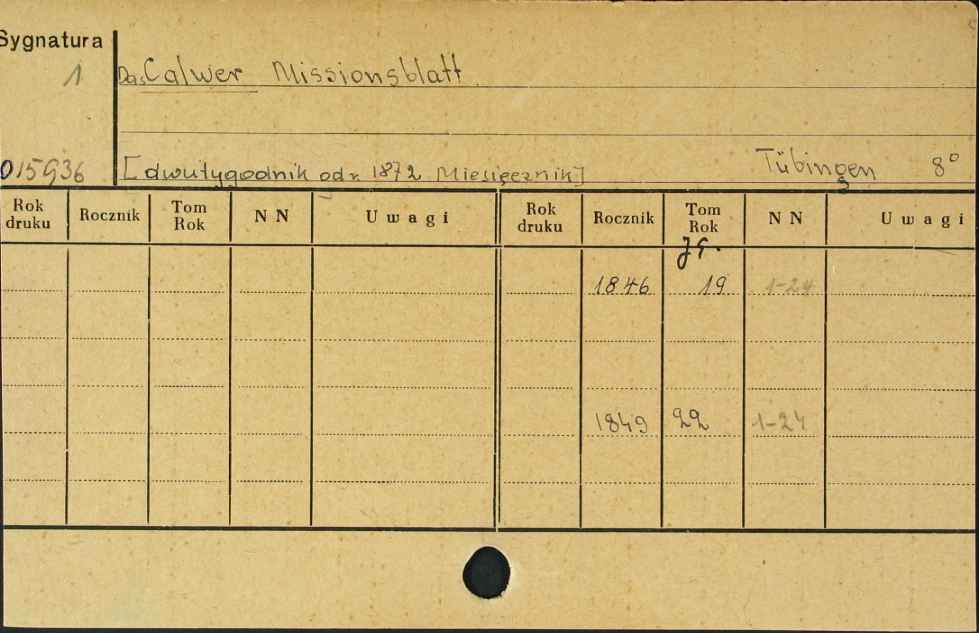 Sygnatura
1
Das Calwer Missionsblatt
015936
[dwutygodnik od r. 1872 Miesięcznik]
Tübingen 8°
Rok druku Rocznik Tom Rok NN Uwagi Rok druku Rocznik Tom Rok NN Uwagi
Jg.
1846 19 1-24
1849 22 1-24